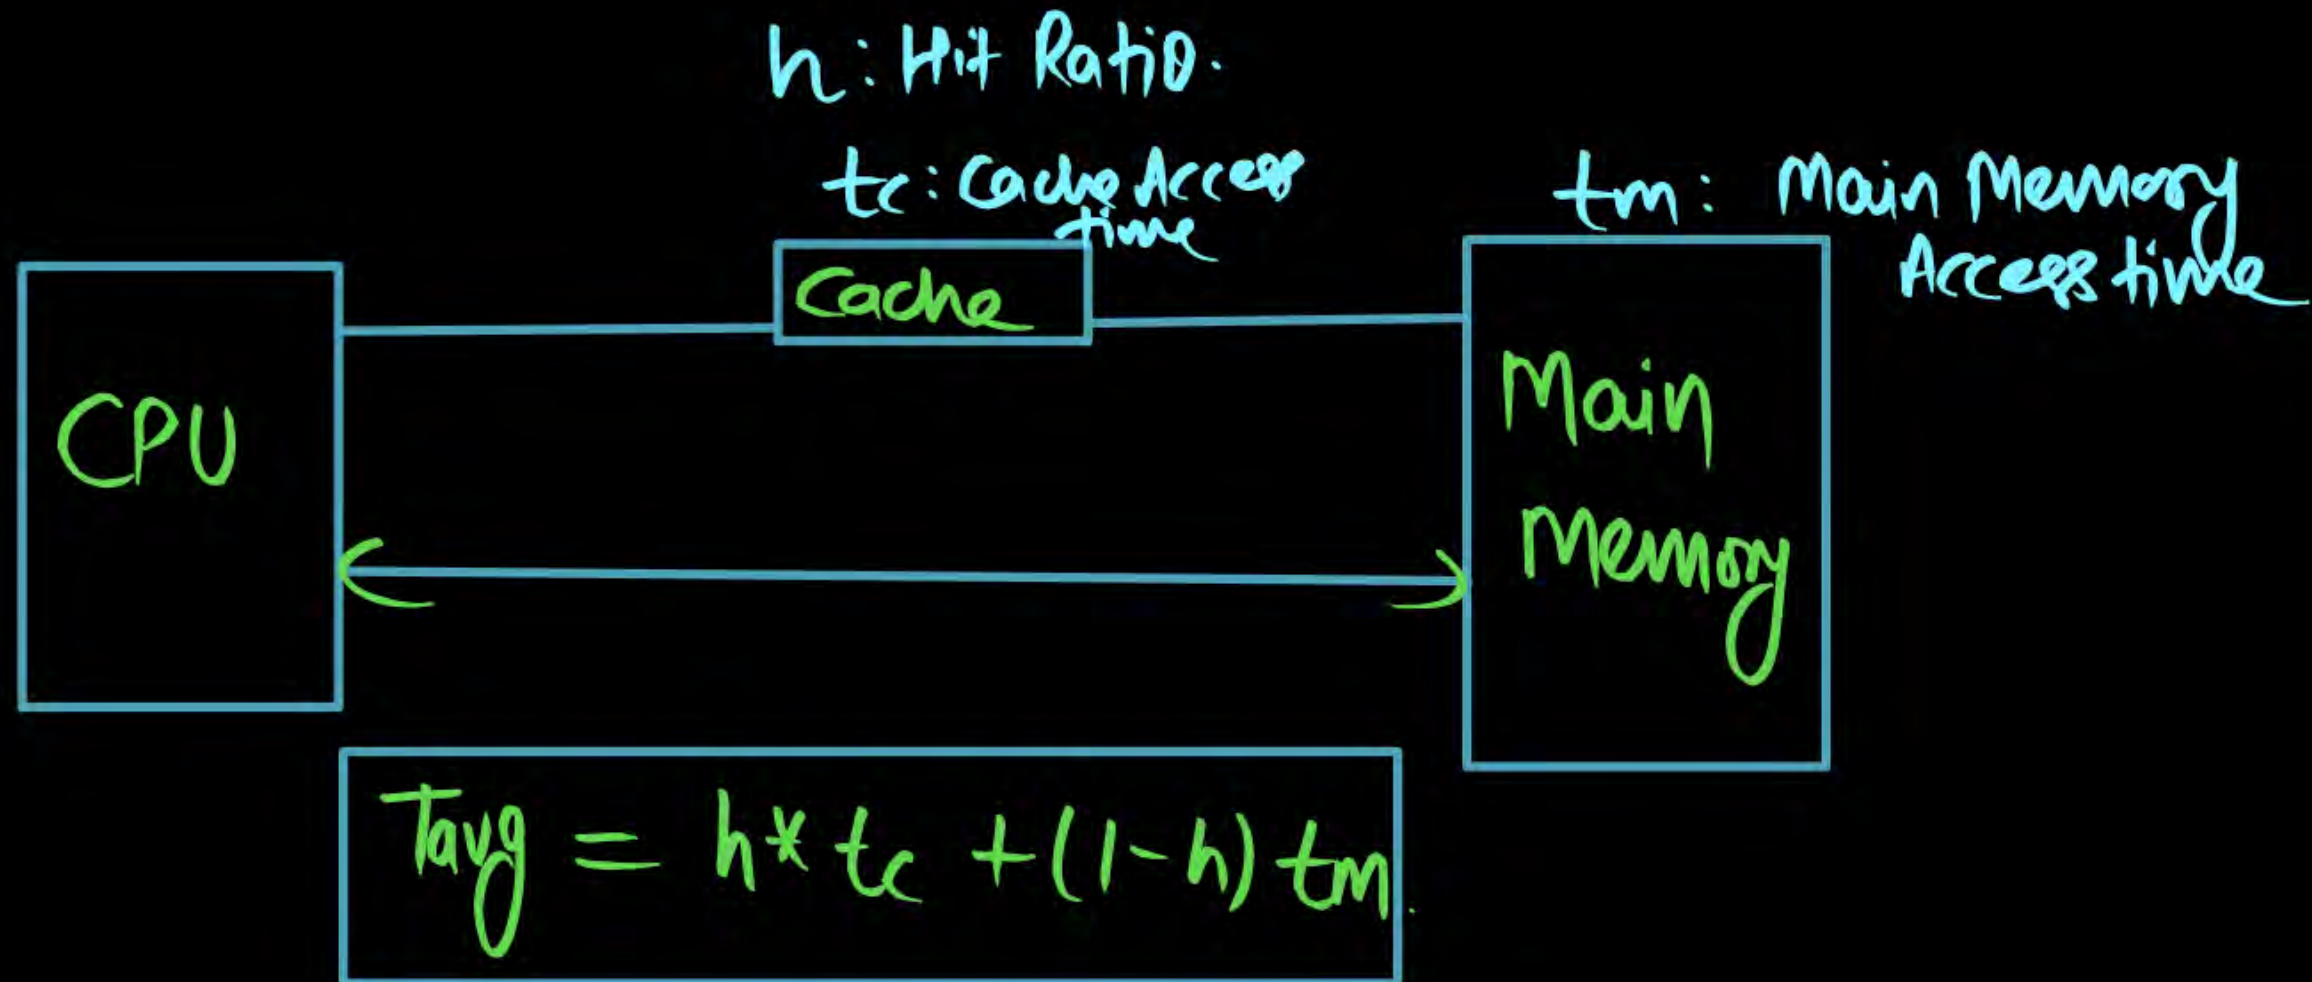 h: Hit Ratio.
tc: Cache Access
time
tm: Main Memory
Access time
Cache
CPU
Main
Memory
Tavg = h* tc + (1-h) tm.